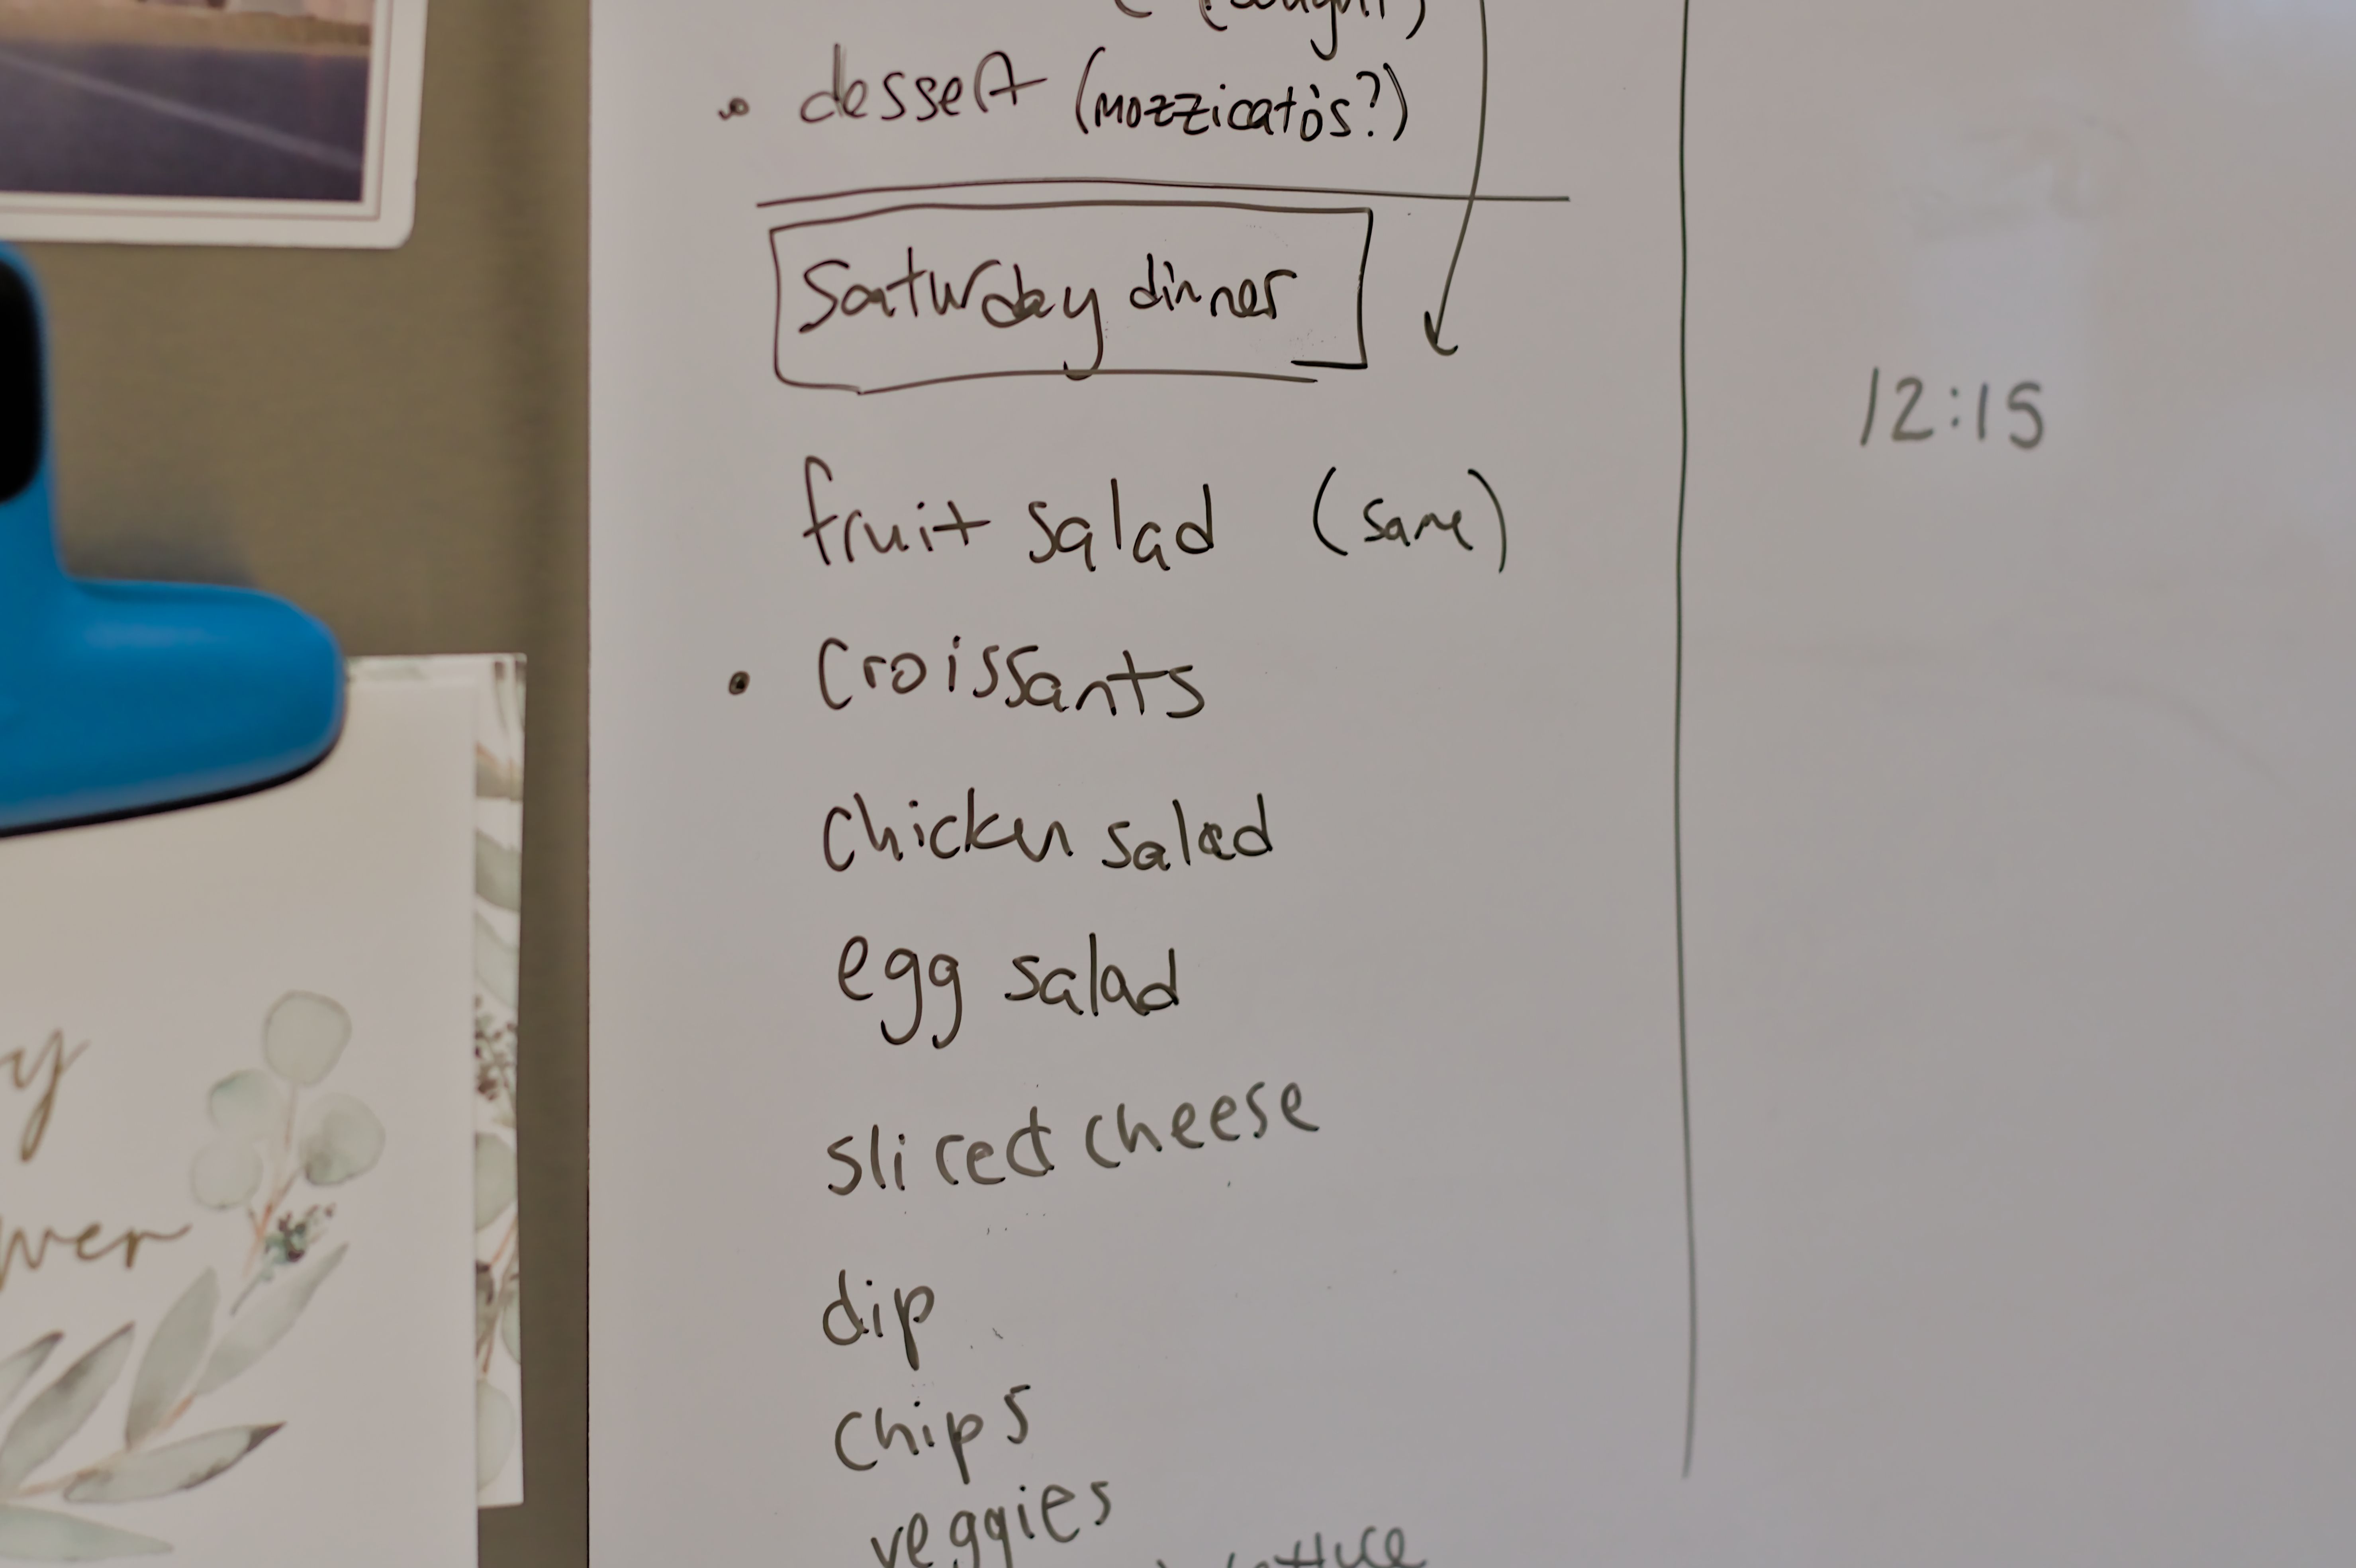 • dessert (Mozzicato's?)
Saturday dinner
fruit salad (same)
• Croissants
Chicken salad
egg salad
sliced cheese
dip
chips
veggies
lettuce
12:15